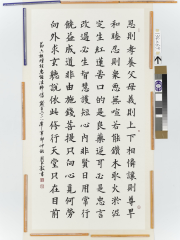 恩則孝養父母義則上下相憐讓則尊卑
和睦忍則衆惡無喧若能鑽木取火淤泥
定生紅蓮苦口的是良藥逆耳必是忠言
改過必生智慧護短心內非賢日用常行
饒益成道非由施錢菩提只向心覓何勞
向外求玄聽說依此修行天堂只在目前